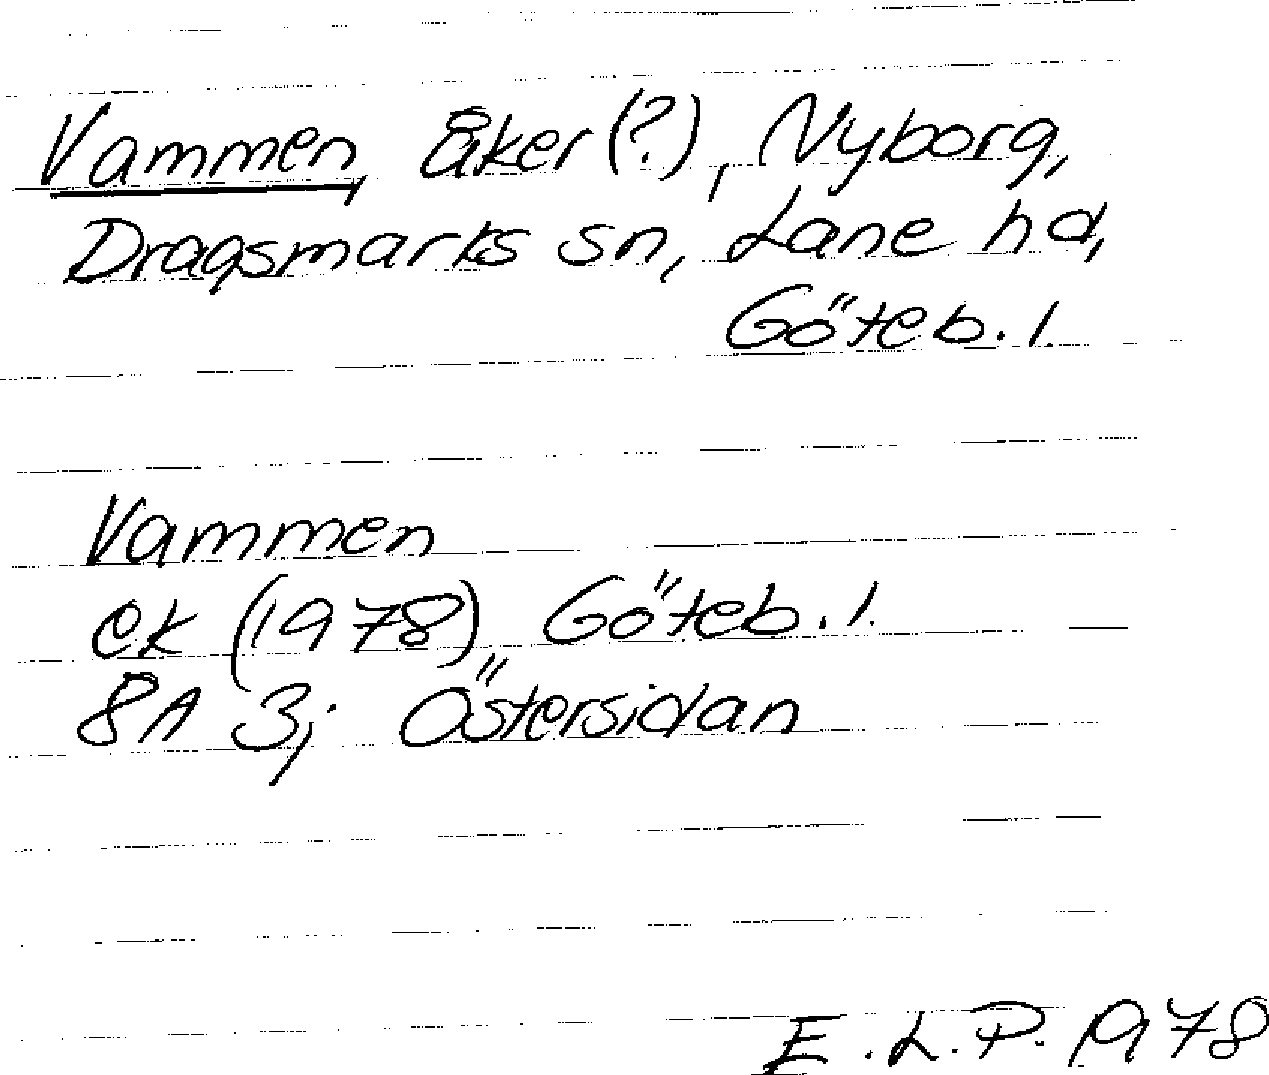 Vammen, åker (?), Nyborg,
Dragsmarks sn, Lane hd,
Göteb. l.
Vammen
ek (1978) Göteb. l.
8A 3; Östersidan
E.L.P. 1978